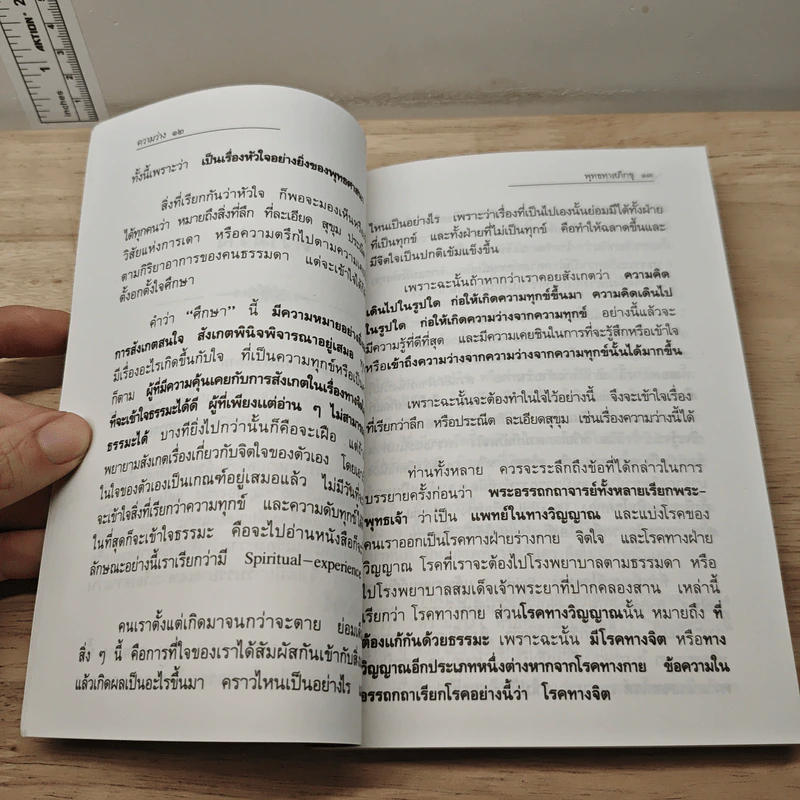 AKTION
Inches
1
2
1
2
3
4
5
ความว่าง ๑๒
ทั้งนี้เพราะว่า เป็นเรื่องหัวใจอย่างยิ่งของพุทธศาสนา
สิ่งที่เรียกกันว่าหัวใจ ก็พอจะมองเห็น
ได้ทุกคนว่า หมายถึงสิ่งที่ลึก ที่ละเอียด สุขุม ประณีต
วิสัยแห่งการเดา หรือความตรึกไปตามความเคย
ตามกิริยาอาการของคนธรรมดา แต่จะเข้าใจได้
ตั้งอกตั้งใจศึกษา
คำว่า “ศึกษา” นี้ มีความหมายอย่าง
การสังเกตสนใจ สังเกตพินิจพิจารณาอยู่เสมอ
มีเรื่องอะไรเกิดขึ้นกับใจ ที่เป็นความทุกข์หรือเป็น
ก็ตาม ผู้ที่มีความคุ้นเคยกับการสังเกตในเรื่องทาง
ที่จะเข้าใจธรรมะได้ดี ผู้ที่เพียงแต่อ่าน ๆ ไม่สามารถ
ธรรมะได้ บางทียิ่งไปกว่านั้นก็คือจะเฝือ แต่ถ้า
พยายามสังเกตเรื่องเกี่ยวกับจิตใจของตัวเอง โดย
ในใจของตัวเองเป็นเกณฑ์อยู่เสมอแล้ว ไม่มีวันที่
จะเข้าใจสิ่งที่เรียกว่าความทุกข์ และความดับทุกข์ได้
ในที่สุดก็จะเข้าใจธรรมะ คือจะไปอ่านหนังสือก็จะ
ลักษณะอย่างนี้เราเรียกว่ามี Spiritual-experience
คนเราตั้งแต่เกิดมาจนกว่าจะตาย ย่อม
สิ่ง ๆ นี้ คือการที่ใจของเราได้สัมผัสกันเข้ากับสิ่ง
แล้วเกิดผลเป็นอะไรขึ้นมา คราวไหนเป็นอย่างไร
พุทธทาสภิกขุ ๑๓
ไหนเป็นอย่างไร เพราะว่าเรื่องที่เป็นไปเองนั้นย่อมมีได้ทั้งฝ่าย
ที่เป็นทุกข์ และทั้งฝ่ายที่ไม่เป็นทุกข์ คือทำให้ฉลาดขึ้นและ
มีจิตใจเป็นปกติเข้มแข็งขึ้น
เพราะฉะนั้นถ้าหากว่าเราคอยสังเกตว่า ความคิด
เดินไปในรูปใด ก่อให้เกิดความทุกข์ขึ้นมา ความคิดเดินไป
ในรูปใด ก่อให้เกิดความว่างจากความทุกข์ อย่างนี้แล้วจะ
มีความรู้ที่ดีที่สุด และมีความเคยชินในการที่จะรู้สึกหรือเข้าใจ
หรือเข้าถึงความว่างจากความว่างจากความทุกข์นั้นได้มากขึ้น
เพราะฉะนั้นจะต้องทำในใจไว้อย่างนี้ จึงจะเข้าใจเรื่อง
ที่เรียกว่าลึก หรือประณีต ละเอียดสุขุม เช่นเรื่องความว่างนี้ได้
ท่านทั้งหลาย ควรจะระลึกถึงข้อที่ได้กล่าวในการ
บรรยายครั้งก่อนว่า พระอรรถกถาจารย์ทั้งหลายเรียกพระ-
พุทธเจ้า ว่าเป็น แพทย์ในทางวิญญาณ และแบ่งโรคของ
คนเราออกเป็นโรคทางฝ่ายร่างกาย จิตใจ และโรคทางฝ่าย
วิญญาณ โรคที่เราจะต้องไปโรงพยาบาลตามธรรมดา หรือ
ไปโรงพยาบาลสมเด็จเจ้าพระยาที่ปากคลองสาน เหล่านี้
เรียกว่า โรคทางกาย ส่วนโรคทางวิญญาณนั้น หมายถึง ที่
ต้องแก้กันด้วยธรรมะ เพราะฉะนั้น มีโรคทางจิต หรือทาง
วิญญาณอีกประเภทหนึ่งต่างหากจากโรคทางกาย ข้อความใน
อรรถกถาเรียกโรคอย่างนี้ว่า โรคทางจิต